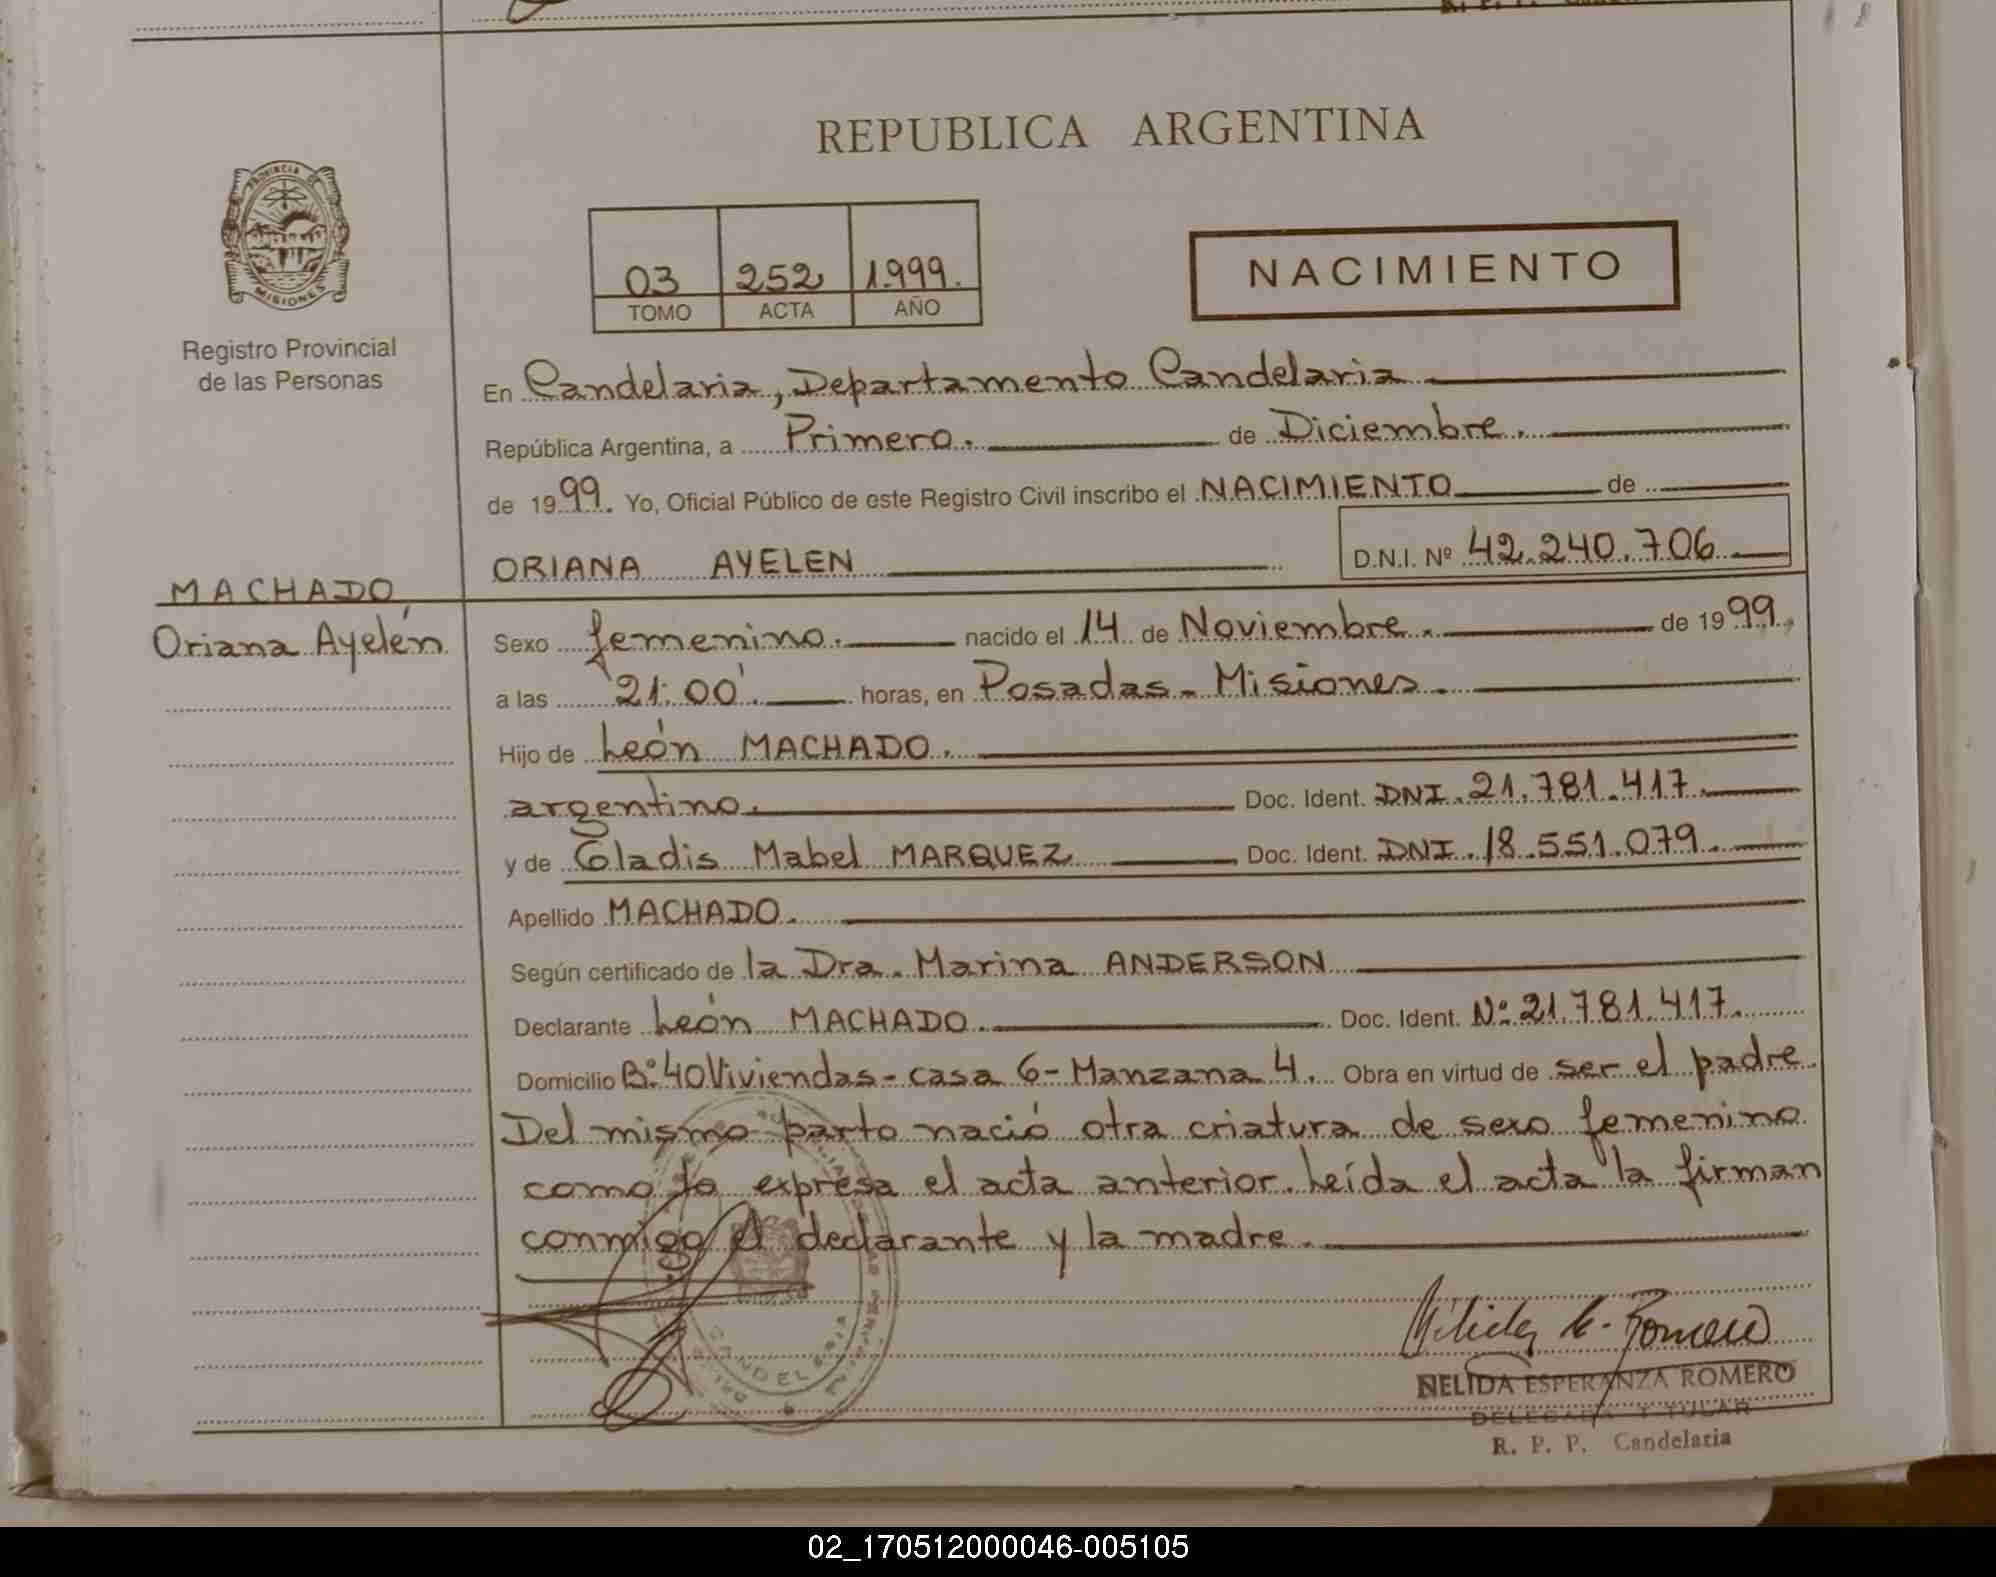 REPUBLICA ARGENTINA
PROVINCIA DE
MISIONES
Registro Provincial
de las Personas
03 252 1.999.
TOMO ACTA AÑO
NACIMIENTO
En Candelaria, Departamento Candelaria
República Argentina, a Primero. de Diciembre.
de 1999. Yo, Oficial Público de este Registro Civil inscribo el NACIMIENTO de
ORIANA AYELEN D.N.I. Nº 42.240.706
MACHADO,
Oriana Ayelén
Sexo femenino. nacido el 14 de Noviembre. de 1999.
a las 21:00'. horas, en Posadas - Misiones.
Hijo de León MACHADO.
argentino. Doc. Ident. DNI. 21.781.417.
y de Gladis Mabel MARQUEZ Doc. Ident. DNI. 18.551.079.
Apellido MACHADO.
Según certificado de la Dra. Marina ANDERSON
Declarante León MACHADO. Doc. Ident. Nº 21.781.417.
Domicilio Bº 40 Viviendas - casa 6 - Manzana 4. Obra en virtud de ser el padre.
Del mismo parto nació otra criatura de sexo femenino
como lo expresa el acta anterior. Leída el acta la firman
conmigo el declarante y la madre.
NELIDA ESPERANZA ROMERO
DELEGADA TITULAR
R. P. P. Candelaria
02_170512000046-005105